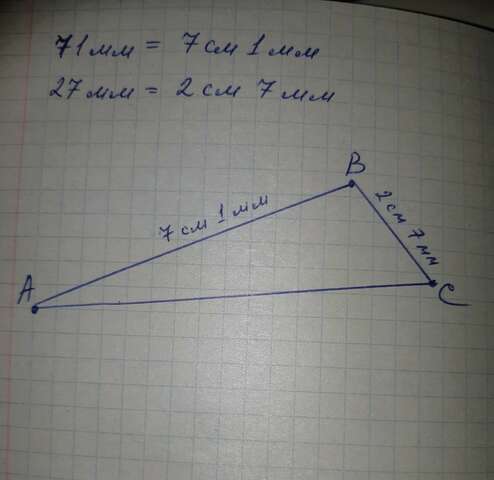 71мм = 7см 1мм
27мм = 2см 7мм
B
7 см 1 мм
2см 7мм
A
C